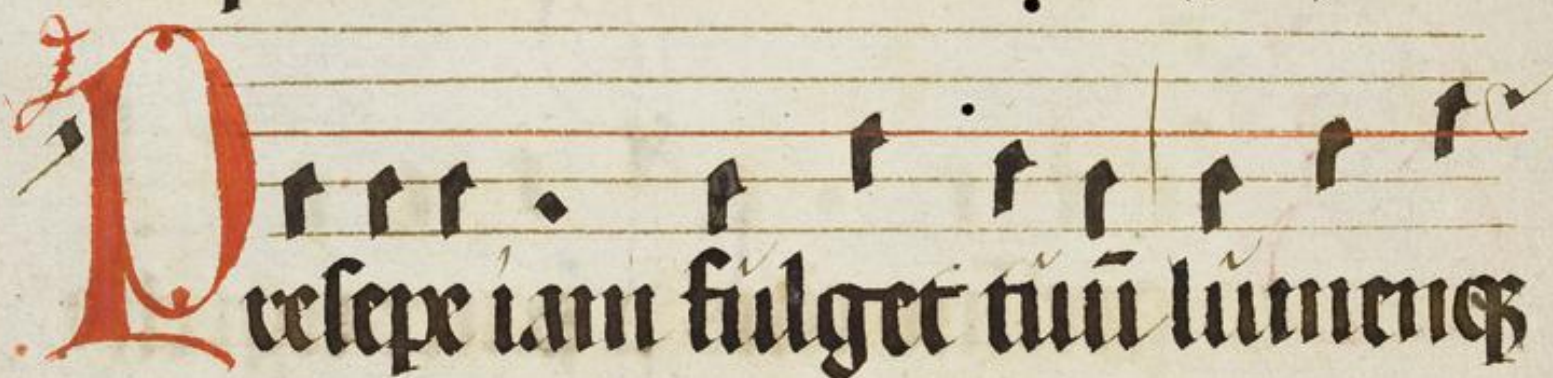 Presepe iam fulget tuū lumenqꝫ